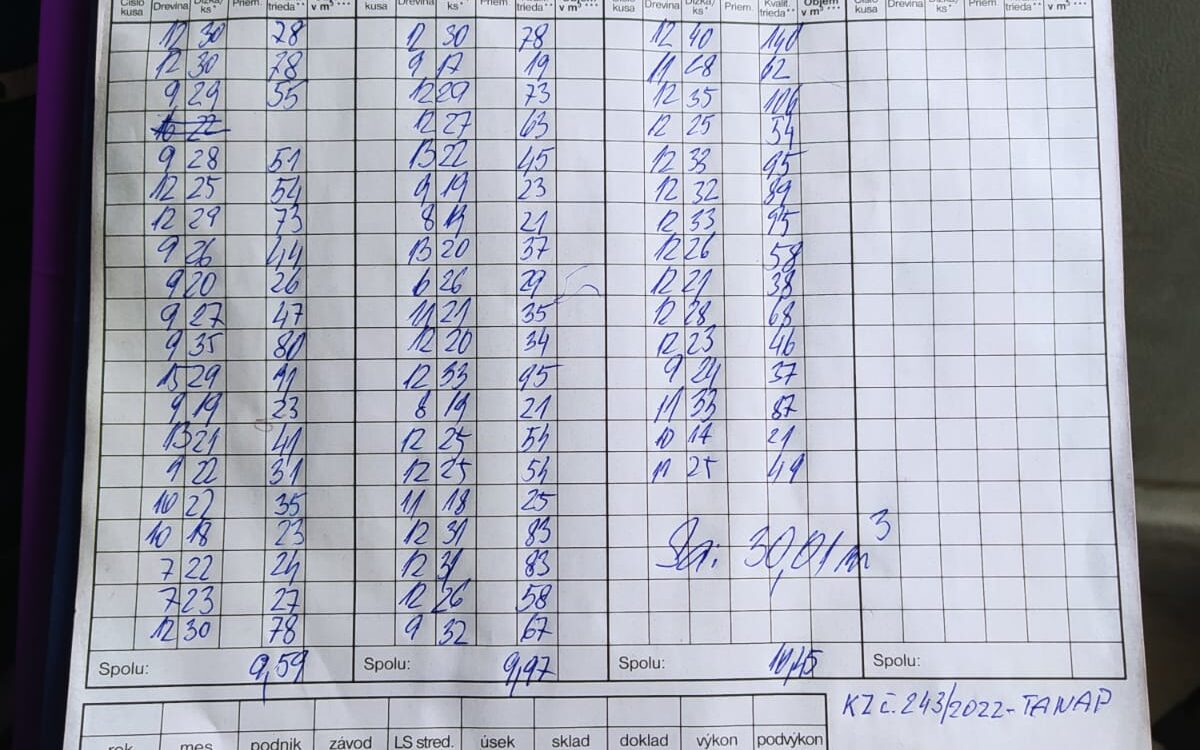 Číslo kusa Drevina Dĺžka/ks* Priem. Kvalit. trieda** v m³*** kusa Drevina Dĺžka/ks* Priem. Kvalit. trieda** Objem v m³*** Číslo kusa Drevina Dĺžka/ks* Priem. Kvalit. trieda** Objem v m³*** Číslo kusa Drevina Dĺžka/ks*
12 30 78 12 30 78 12 40 140
12 30 78 9 17 19 11 28 62
9 29 55 12 29 73 12 35 106
16 22 12 27 63 12 25 54
9 28 51 13 22 45 12 33 95
12 25 54 9 19 23 12 32 89
12 29 73 8 19 21 12 33 95
9 26 44 13 20 37 12 26 58
9 20 26 6 26 29 12 21 38
9 27 47 11 21 35 12 28 68
9 35 80 12 20 34 12 23 46
15 29 91 12 33 95 9 24 37
9 19 23 8 19 21 11 33 87
13 21 41 12 25 54 10 17 21
9 22 31 12 25 54 11 25 49
10 22 35 11 18 25
10 18 23 12 31 83 Sa: 30,01 m³
7 22 24 12 31 83
7 23 27 12 26 58
12 30 78 9 32 67
Spolu: 9,59 Spolu: 9,97 Spolu: 10,45 Spolu:
KZ č. 243/2022-TANAP
rok mes podnik závod LS stred. úsek sklad doklad výkon podvýkon